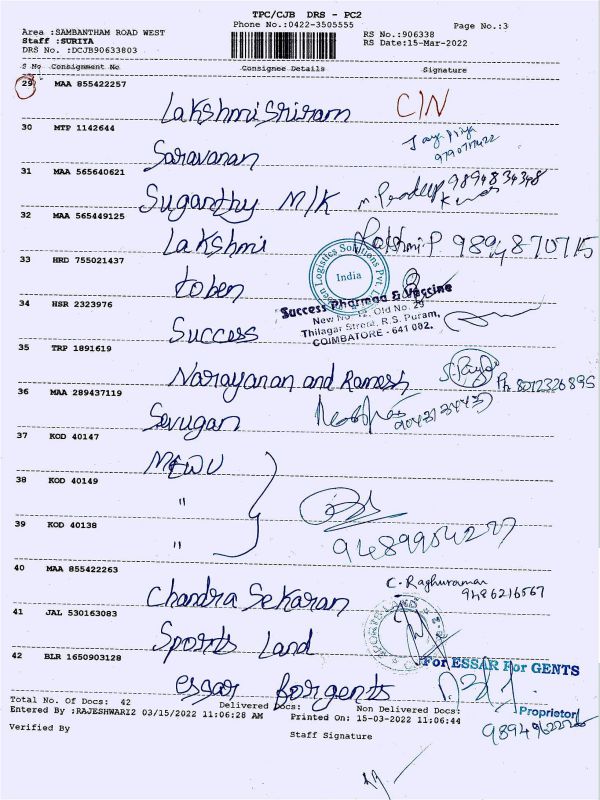 TPC/CJB DRS - PC2
Phone No.:0422-3505555
Page No.:3
Area :SAMBANTHAM ROAD WEST
Staff :SURIYA
DRS No. :DCJB90633803
RS No.:906338
RS Date:15-Mar-2022
S No Consignment No Consignee Details Signature
29 MAA 855422257
Lakshmi Sriram CIN
30 MTP 1142644
Saravanan Jaya Priya
31 MAA 565640621
Suganthy M/K m. Pradeep Kumar 9894834348
32 MAA 565449125
Lakshmi Lakshmi P 9894870715
33 HRD 755021437
toben
Logistics Solutions Pvt.
India
34 HSR 2323976
Success
Success Pharmaa & Vaccine
New No 12, Old No. 29
Thilagar Street, R.S. Puram,
COIMBATORE - 641 002.
35 TRP 1891619
Narayanan and Ramesh Ph 8012326895
36 MAA 289437119
Sevugan
37 KOD 40147
MEWU
38 KOD 40149
"
39 KOD 40138
"
40 MAA 855422263
Chandra Sekaran C. Raghuraman
9486216567
41 JAL 530163083
Sports Land
SPORTS LAND
42 BLR 1650903128
essar for gents
For ESSAR For GENTS
Proprietor
Total No. Of Docs: 42 Delivered Docs: Non Delivered Docs:
Entered By :RAJESHWARI2 03/15/2022 11:06:28 AM Printed On: 15-03-2022 11:06:44
Verified By Staff Signature